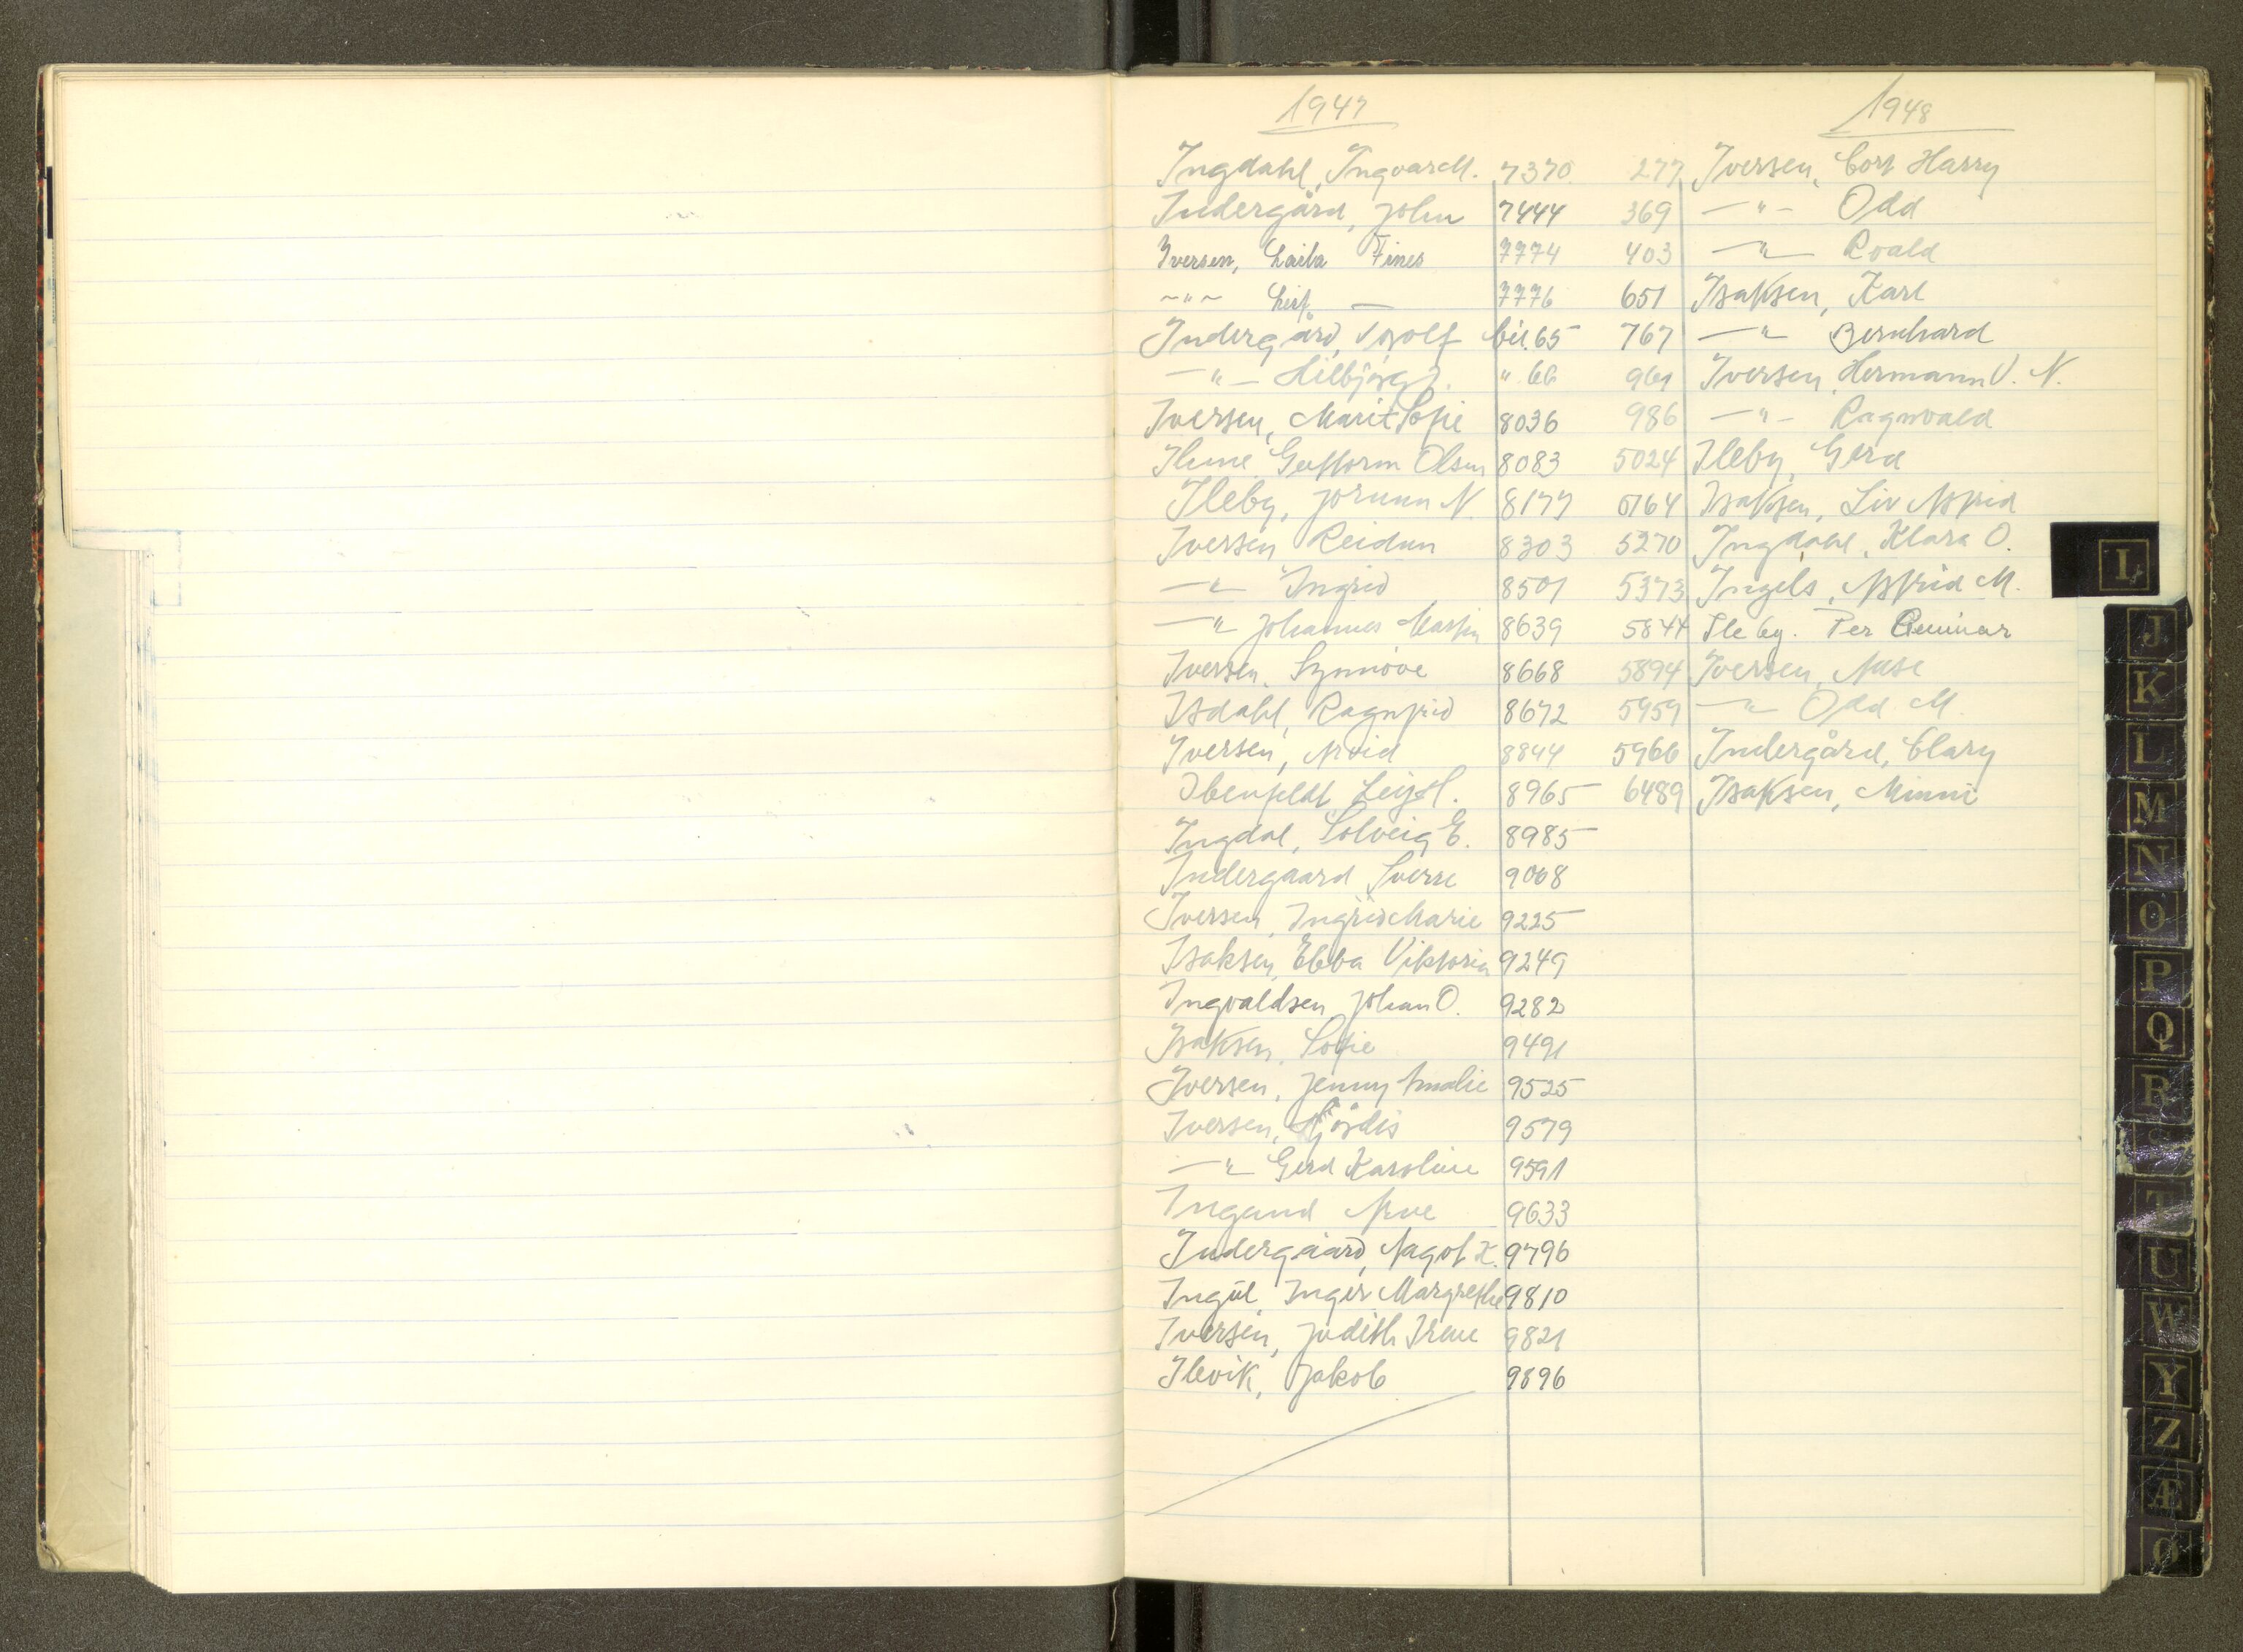 1947
Ingdahl, Ingvar M. 7370
Indergård, John 7444
Iversen, Laila Fines 7774
~"~ Leif — 7776
Indergård, Torolf bil. 65
—"— Hilbjørg J. " 66
Iversen, Marit Sofie 8036
Guttorm Olsen 8083
Ileby, Jorunn N. 8177
Iversen Reidun 8303
—"— Ingrid 8501
—"— Johannes Martin 8639
Iversen, Synnöve 8668
Isdahl, Ragnfrid 8672
Iversen, Arvid 8844
Ibenfeldt, Leif H. 8965
Ingdal, Solveig E. 8985
Indergaard Sverre 9068
Iversen, Ingrid Marie 9225
Isaksen, Ebba Viktoria 9249
Ingvaldsen Johan O. 9282
Isaksen, Sofie 9491
Iversen, Jenny Amalie 9525
Iversen, Hjördis 9579
—"— Gerd Karoline 9591
Arve 9633
Indergaard, Aagot K. 9796
Inger Margrethe 9810
Iversen, Judith Irene 9821
Ilevik, Jakob 9896
1948
277 Iversen, Cort Harry
369 —"— Odd
403 —"— Roald
651 Isaksen, Karl
767 —"— Bernhard
961 Iversen, Hermann V. N.
986 —"— Ragnvald
5024 Ileby, Gerd
5164 Isaksen, Liv Astrid
5270 Ingdahl, Klara O.
5373 Ingels, Astrid M.
5844 Ileby. Per Gunnar
5894 Iversen, Aase
5959 —"— Odd M.
5966 Indergård, Clary
6489 Isaksen, Minni
I
J
K
L
M
N
O
P
Q
R
S
T
U
W
Y
Z
Æ
Ø